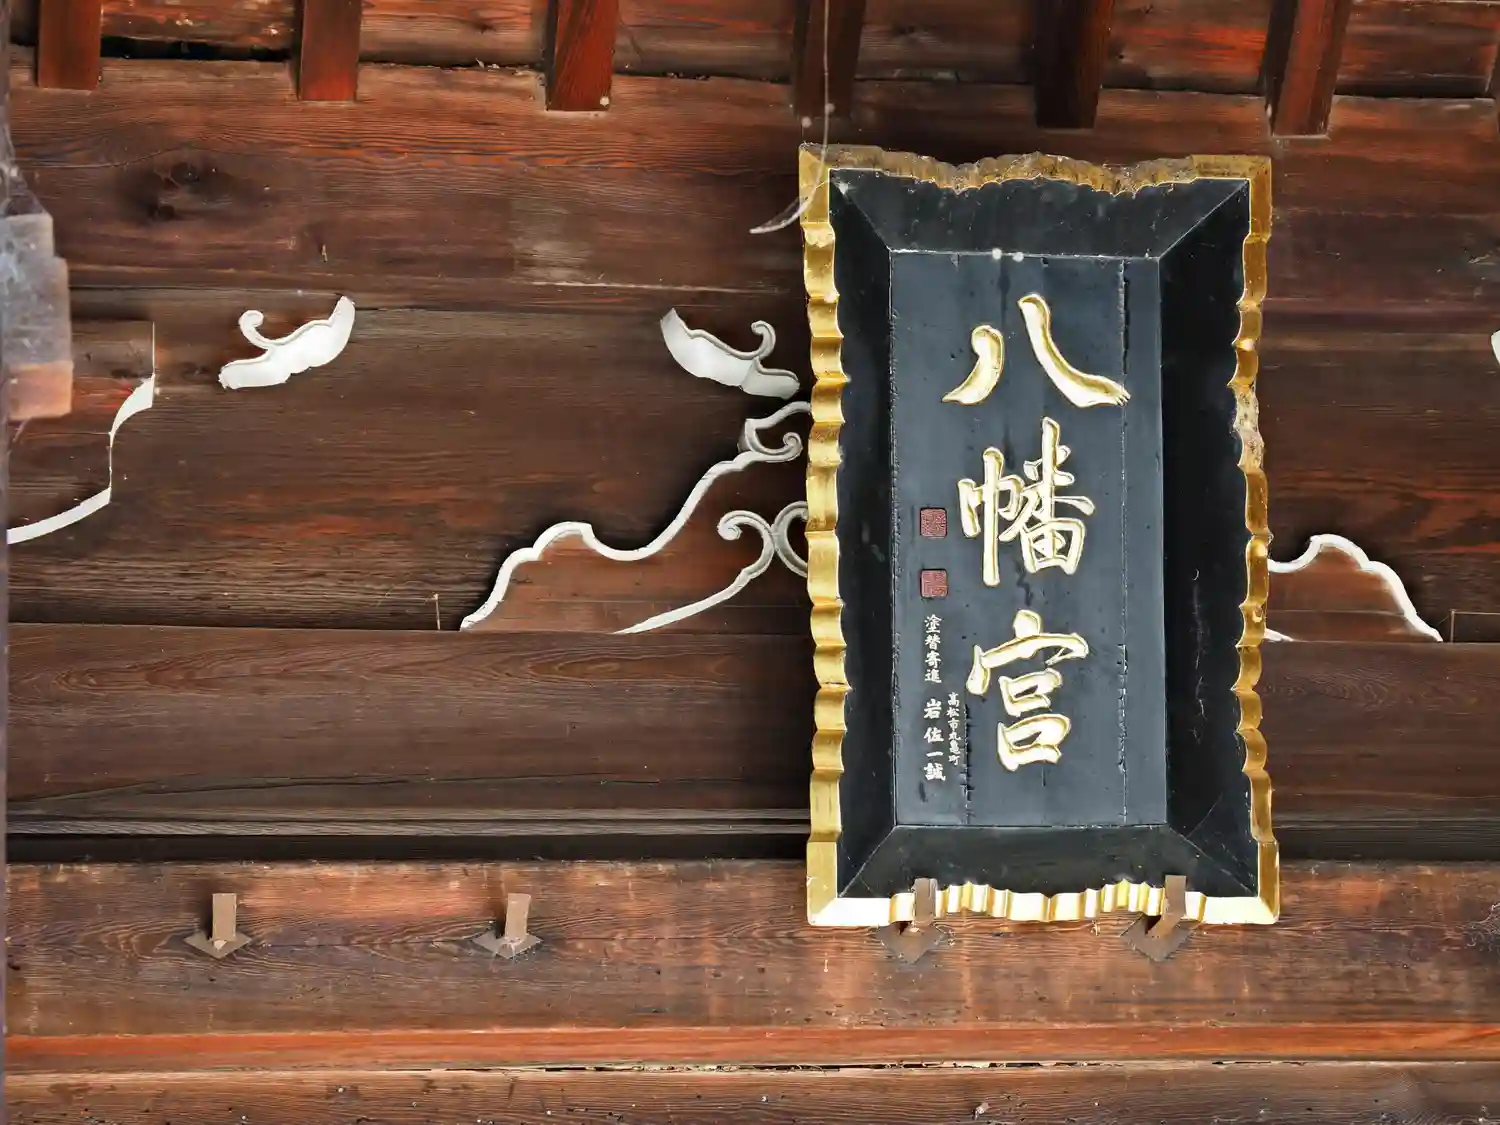 八幡宮
高松市丸亀町
塗替寄進 岩佐一誠